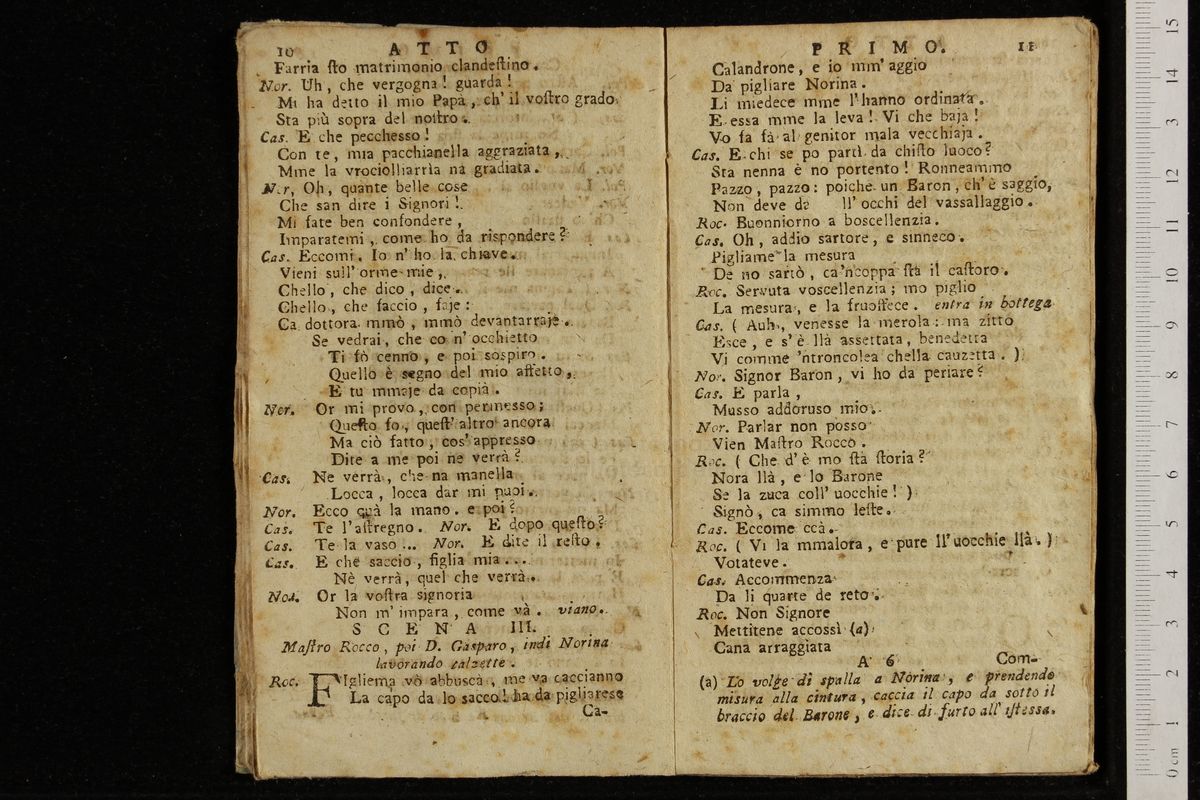 10 ATTO
Farria ſto matrimonio clandeſtino.
Nor. Uh, che vergogna! guarda!
Mi ha detto il mio Papà, ch' il voſtro grado
Sta più sopra del noſtro.
Cas. E che pecchesso!
Con te, mia pacchianella aggraziata,
Mme la vrociolliarria na gradiata.
Nor, Oh, quante belle cose
Che san dire i Signori!
Mi fate ben confondere,
Imparatemi, come ho da rispondere?
Cas. Eccomi. Io n' ho la chiave.
Vieni sull' orme mie,
Chello, che dico, dice.
Chello, che faccio, faje:
Ca dottora mmò, mmò devantarraje.
Se vedrai, che co n' occhietto
Ti fò cenno, e poi sospiro.
Quello è segno del mio affetto,
E tu mmaje da copià.
Nor. Or mi provo, con permesso;
Queſto fo, queſt' altro ancora
Ma ciò fatto, cos' appresso
Dite a me poi ne verrà?
Cas. Ne verrà, che na manella
Locca, locca dar mi puoi.
Nor. Ecco quà la mano. e poi?
Cas. Te l'aſtregno. Nor. E dopo queſto?
Cas. Te la vaso ... Nor. E dite il reſto.
Cas. E che saccio, figlia mia...
Nè verrà, quel che verrà.
Nor. Or la voſtra signoria
Non m' impara, come và. viano.
SCENA III.
Maſtro Rocco, poi D. Gasparo, indi Norina
lavorando calzette.
Roc. FIgliema vò abbuscà, me va caccianno
La capo da lo sacco! ha da pigliarese
Ca-
PRIMO. 11
Calandrone, e io mm' aggio
Da pigliare Norina.
Li miedece mme l' hanno ordinata.
E essa mme la leva! Vi che baja!
Vo fa fà al genitor mala vecchiaja.
Cas. E chi se po partì da chiſto luoco?
Sta nenna è no portento! Ronneammo
Pazzo, pazzo: poiche un Baron, ch' è saggio,
Non deve da ll' occhi del vassallaggio.
Roc. Buonniorno a boscellenzia.
Cas. Oh, addio sartore, e sinneco.
Pigliame la mesura
De no sartò, ca'ncoppa ſtà il caſtoro.
Roc. Servuta voscellenzia; mo piglio
La mesura, e la fruoffece. entra in bottega
Cas. ( Auh, venesse la merola: ma zitto
Esce, e s' è llà assettata, benedetta
Vi comme 'ntroncolea chella cauzetta. )
Nor. Signor Baron, vi ho da perlare?
Cas. E parla,
Musso addoruso mio.
Nor. Parlar non posso
Vien Maſtro Rocco.
Roc. ( Che d' è mo ſtà ſtoria?
Nora llà, e lo Barone
Se la zuca coll' uocchie! )
Signò, ca simmo leſte.
Cas. Eccome ccà.
Roc. ( Vi la mmalora, e pure ll' uocchie llà. )
Votateve.
Cas. Accommenza
Da li quarte de reto.
Roc. Non Signore
Mettitene accossì (a)
Cana arraggiata
A 6 Com-
(a) Lo volge di spalla a Norina, e prendendo
misura alla cintura, caccia il capo da sotto il
braccio del Barone, e dice di furto all' iſtessa.